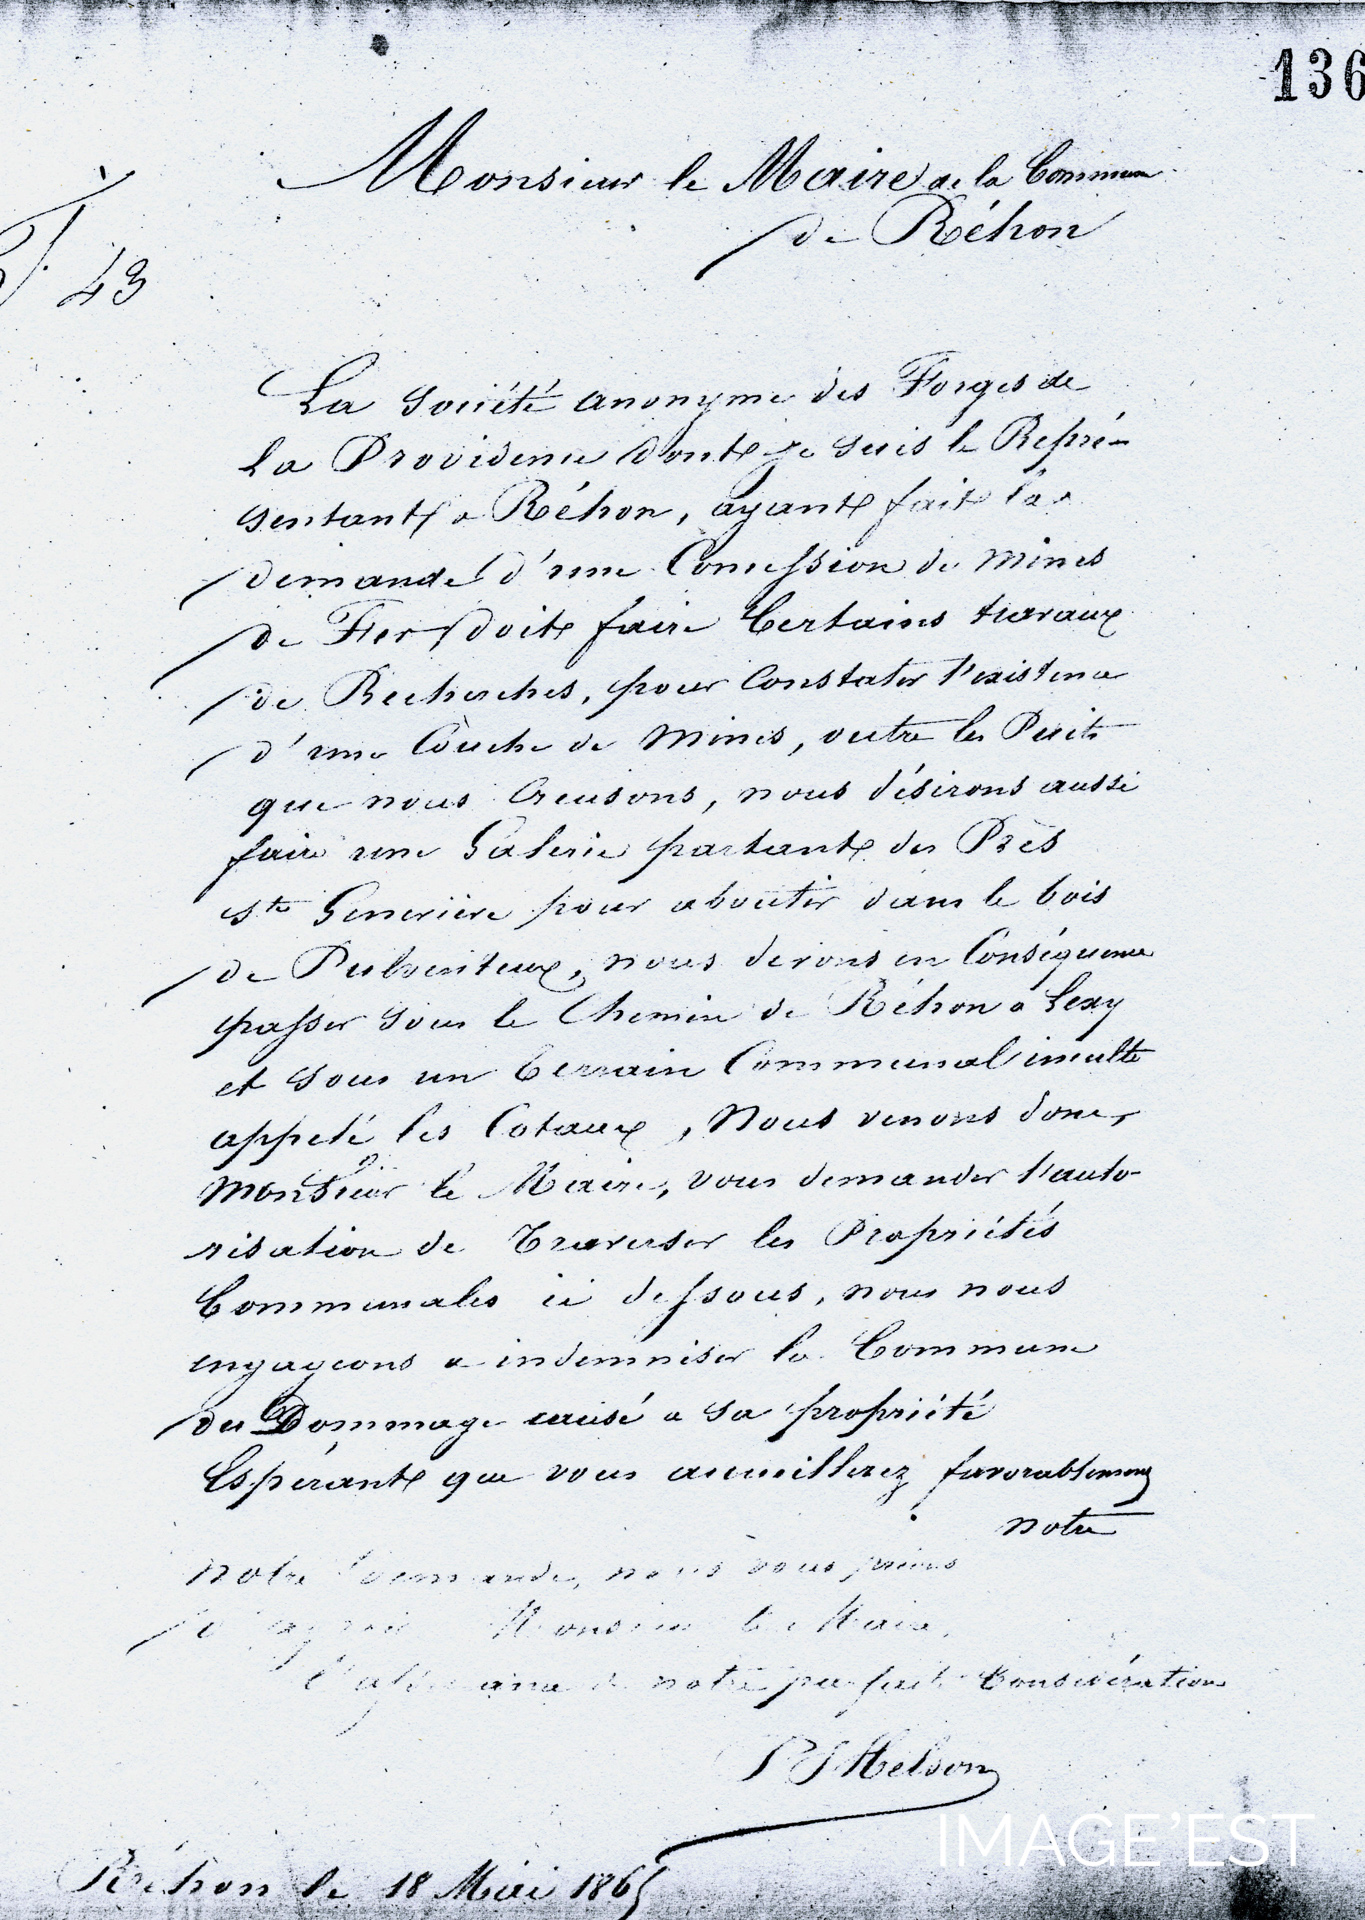 136
Monsieur le Maire de la Commune
de Réhon
43
La Société anonyme des Forges de
la Providence dont je suis le Repré-
sentant a Réhon, ayant fait la
demande d'une Concession de Mines
de Fer, doit faire Certains travaux
de Recherches, pour Constater l'existence
d'une Couche de Mines, outre les Puits
que nous Creusons, nous désirons aussi
faire une Galerie partant des Près
Ste Geneviève pour aboutir dans le bois
de Pulventeux, nous devons en Conséquence
passer sous le Chemin de Réhon a Lexy
et sous un terrain Communal inculte
appelé les Cotaux, Nous venons donc,
Monsieur le Maire, vous demander l'auto-
risation de Traverser les Propriétés
Communales ci dessous, nous nous
engageons a indemniser la Commune
du Dommage causé a sa propriété
Espérant que vous accueillerez favorablement
notre
notre demande, nous vous prions
d'agréer Monsieur le Maire,
l'assurance de notre parfaite Considération
Réhon le 18 Mai 1865
IMAGE'EST